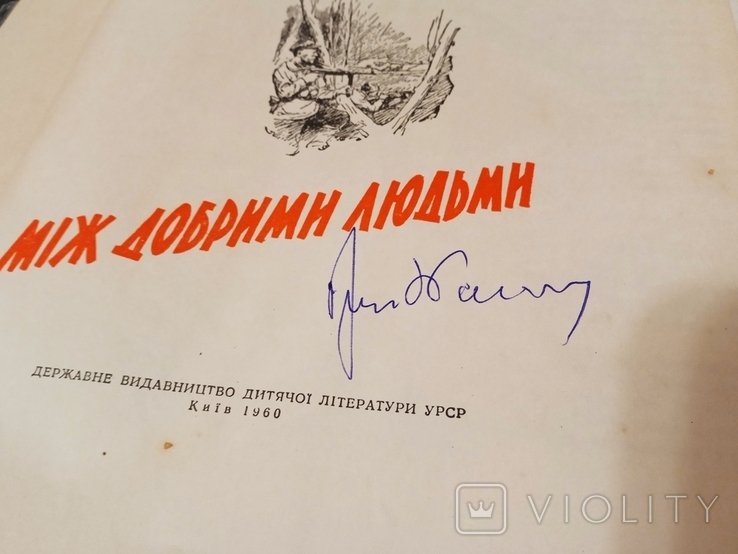 МІЖ ДОБРИМИ ЛЮДЬМИ
ДЕРЖАВНЕ ВИДАВНИЦТВО ДИТЯЧОЇ ЛІТЕРАТУРИ УРСР
Київ 1960
VIOLITY